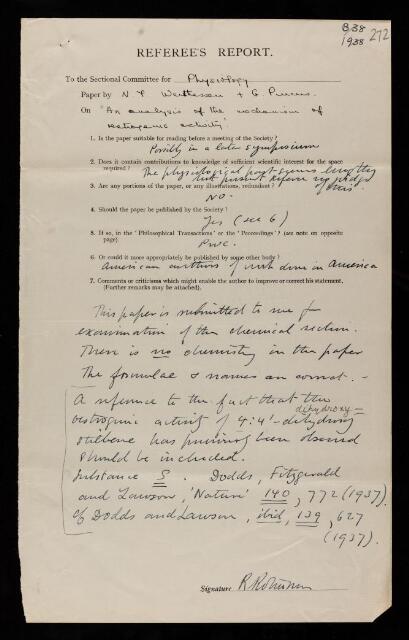 B38
1938
272
REFEREE'S REPORT.
To the Sectional Committee for Physiology
Paper by N T Werthessen + G Pincus.
On 'An analysis of the mechanism of
oestrogenic activity'
1. Is the paper suitable for reading before a meeting of the Society?
Possibly in a later symposium
2. Does it contain contributions to knowledge of sufficient scientific interest for the space
required? The physiological part seems lengthy
but present referee no judge
of this.
3. Are any portions of the paper, or any illustrations, redundant?
NO.
4. Should the paper be published by the Society?
Yes (see 6)
5. If so, in the 'Philosophical Transactions' or the 'Proceedings'? (see note on opposite
page)
Proc.
6. Or could it more appropriately be published by some other body?
American authors of work done in America
7. Comments or criticisms which might enable the author to improve or correct his statement.
(Further remarks may be attached).
This paper is submitted to me for
examination of the chemical section.
There is no chemistry in the paper
The formulae & names are correct. -
A reference to the fact that the
oestrogenic activity of 4:4'-dihydroxy-
stilbene has previously been observed
should be included.
Substance S. Dodds, Fitzgerald
and Lawson, 'Nature' 140, 772 (1937).
cf Dodds and Lawson, ibid, 139, 627
(1937).
Signature R Robinson